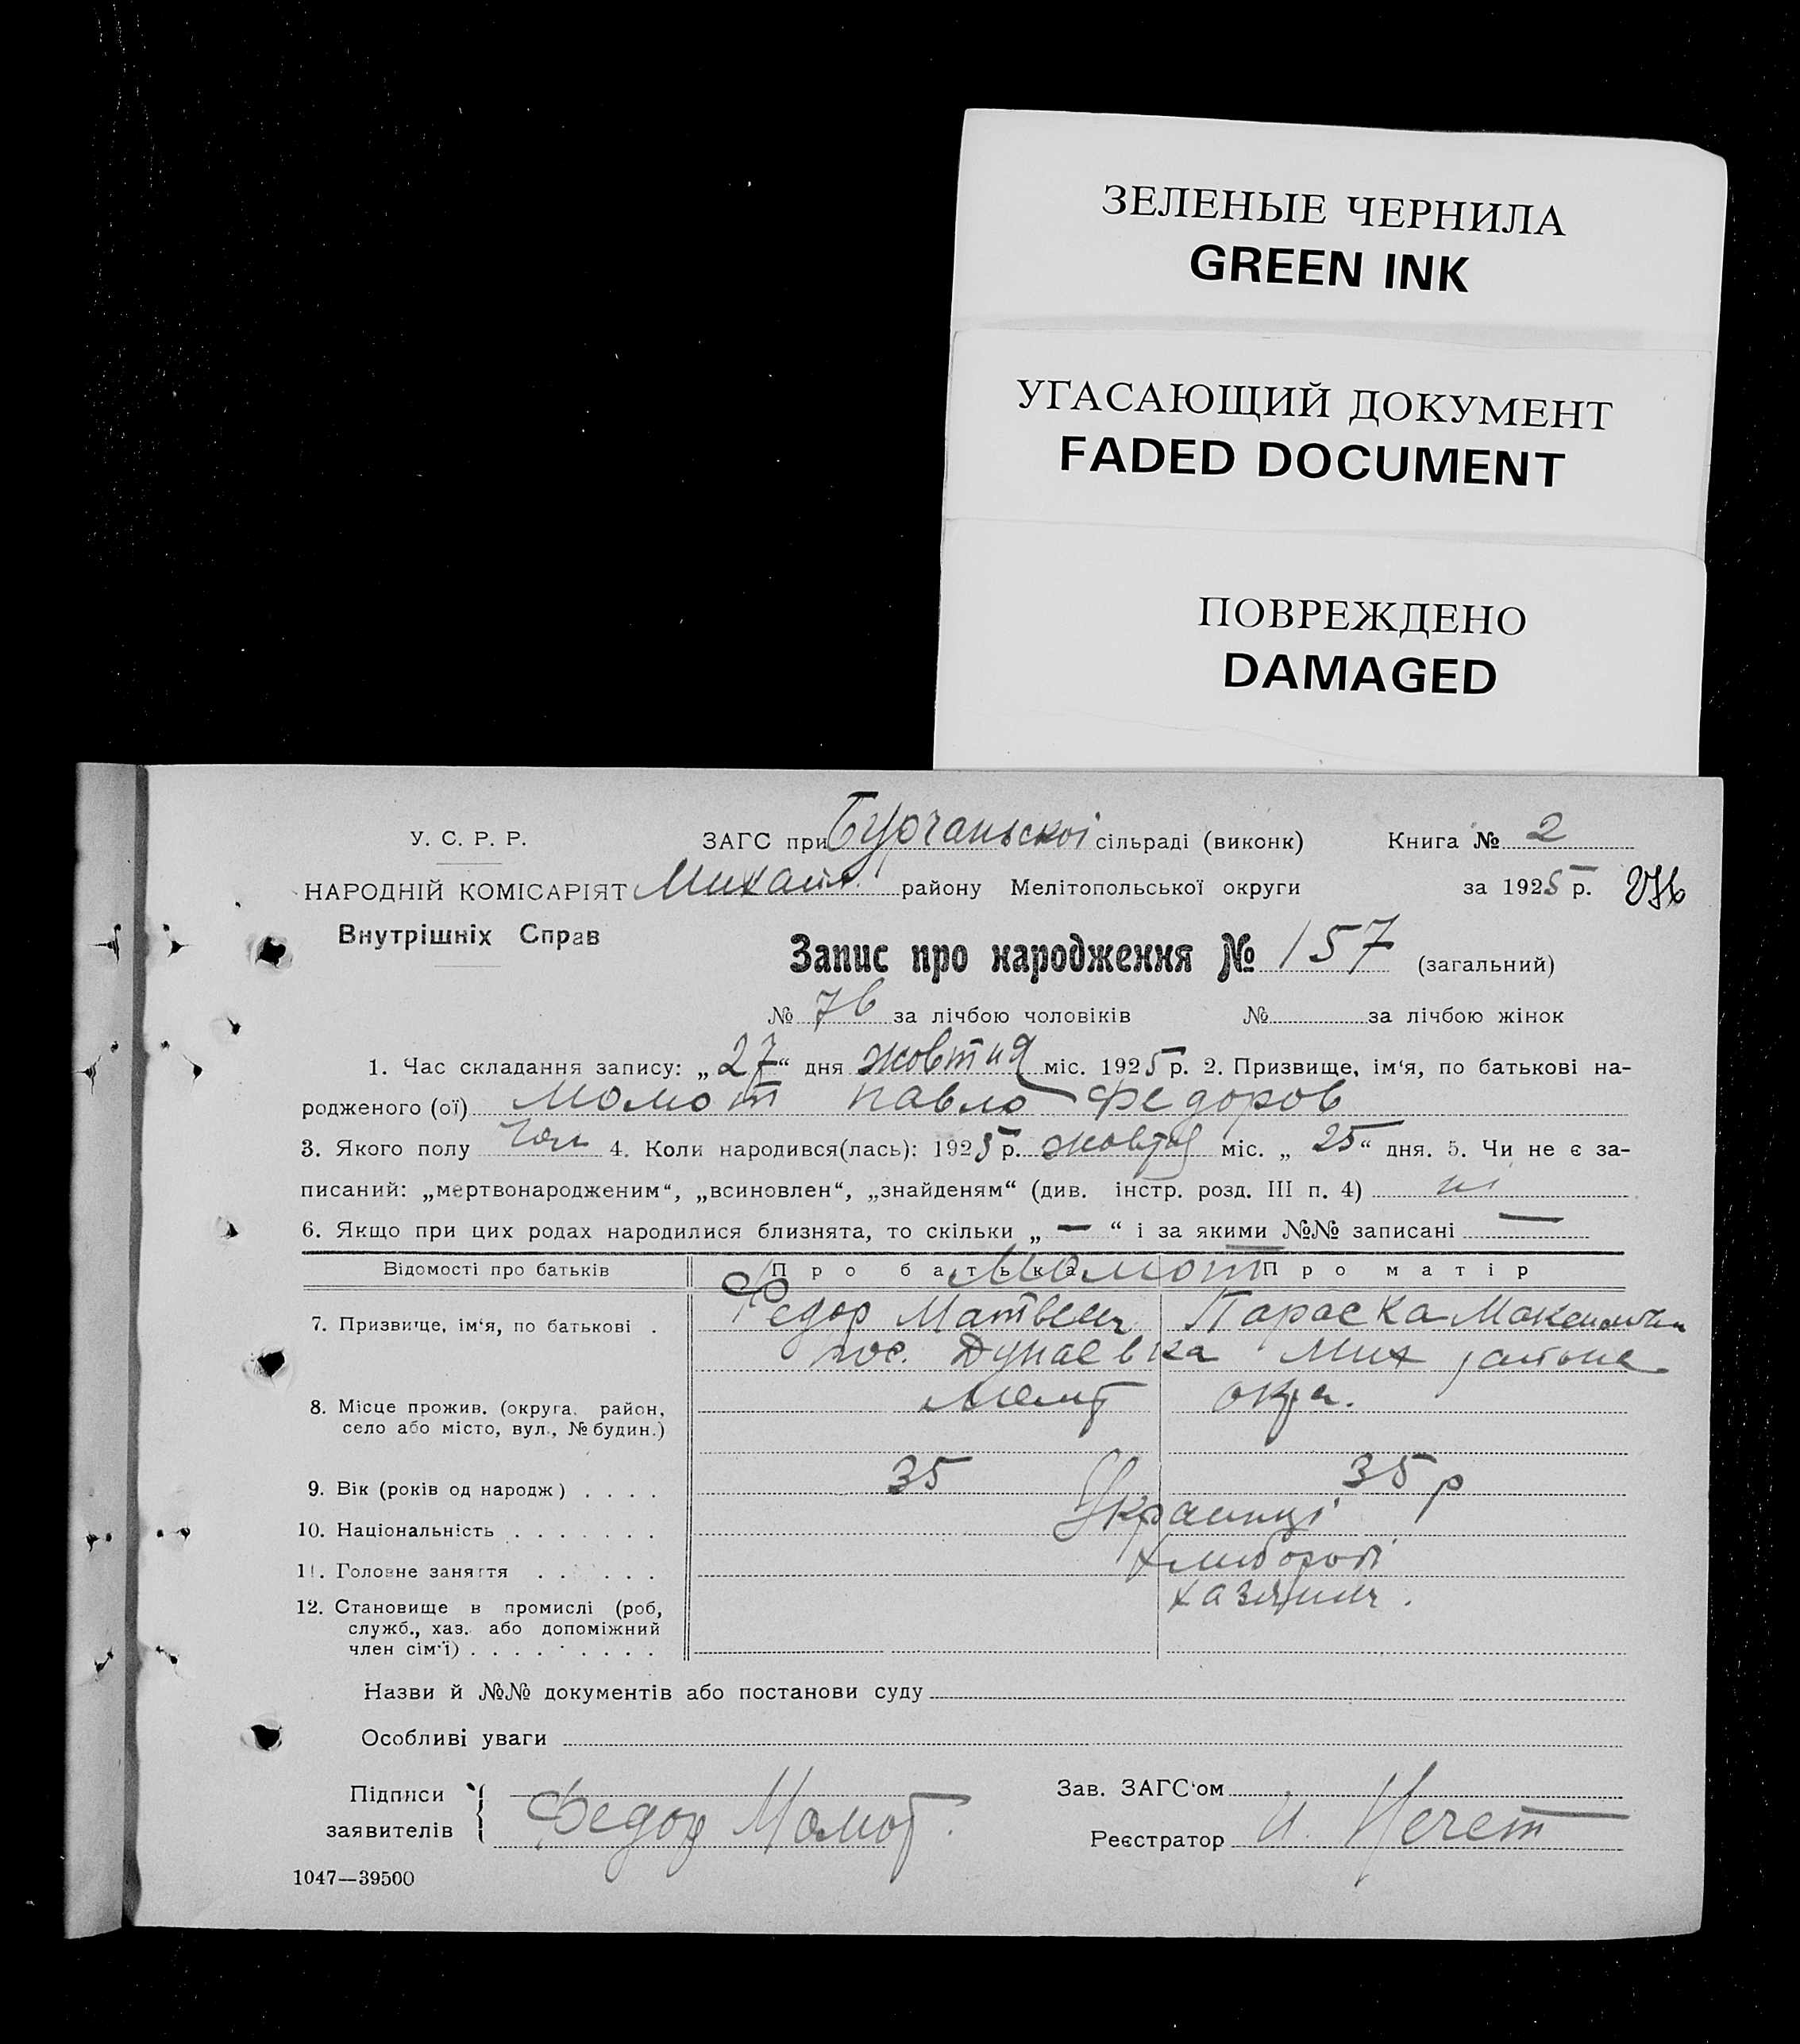 ЗЕЛЕНЫЕ ЧЕРНИЛА
GREEN INK
УГАСАЮЩИЙ ДОКУМЕНТ
FADED DOCUMENT
ПОВРЕЖДЕНО
DAMAGED
У. С. Р. Р. ЗАГС при Бурчанської сільраді (виконк) Книга № 2
НАРОДНІЙ КОМІСАРІЯТ Михайл. району Мелітопольської округи за 1925 р.
Внутрішніх Справ
Запис про народження № 157 (загальний)
№ 76 за лічбою чоловіків № за лічбою жінок
1. Час складання запису: „27“ дня жовтня міс. 1925 р. 2. Призвище, ім‘я, по батькові на-
родженого (ої) Момот Павло Федоров
3. Якого полу Чол 4. Коли народився(лась): 1925 р. жовтня міс. „25“ дня. 5. Чи не є за-
писаний: „мертвонародженим“, „всиновлен“, „знайденям“ (див. інстр. розд. III п. 4) ні
6. Якщо при цих родах народилися близнята, то скільки „—“ і за якими №№ записані —
Відомості про батьків Про батька Про матір
Момот
7. Призвище, ім‘я, по батькові . Федор Матвеев Параска
пос. Дунаевка Мих района
8. Місце прожив. (округа, район, Мелит окр.
село або місто, вул., № будин.)
9. Вік (років од народж) . . . . 35 35 р
10. Національність . . . . . . . Украинці
11. Головне заняття . . . . . . хлибороби
12. Становище в промислі (роб, хазяин.
служб., хаз. або допоміжний
член сім‘ї) . . . . . . . . .
Назви й №№ документів або постанови суду
Особливі уваги
Підписи Зав. ЗАГС‘ом
заявителів Федор Момот. Реєстратор И. Нечет
1047—39500